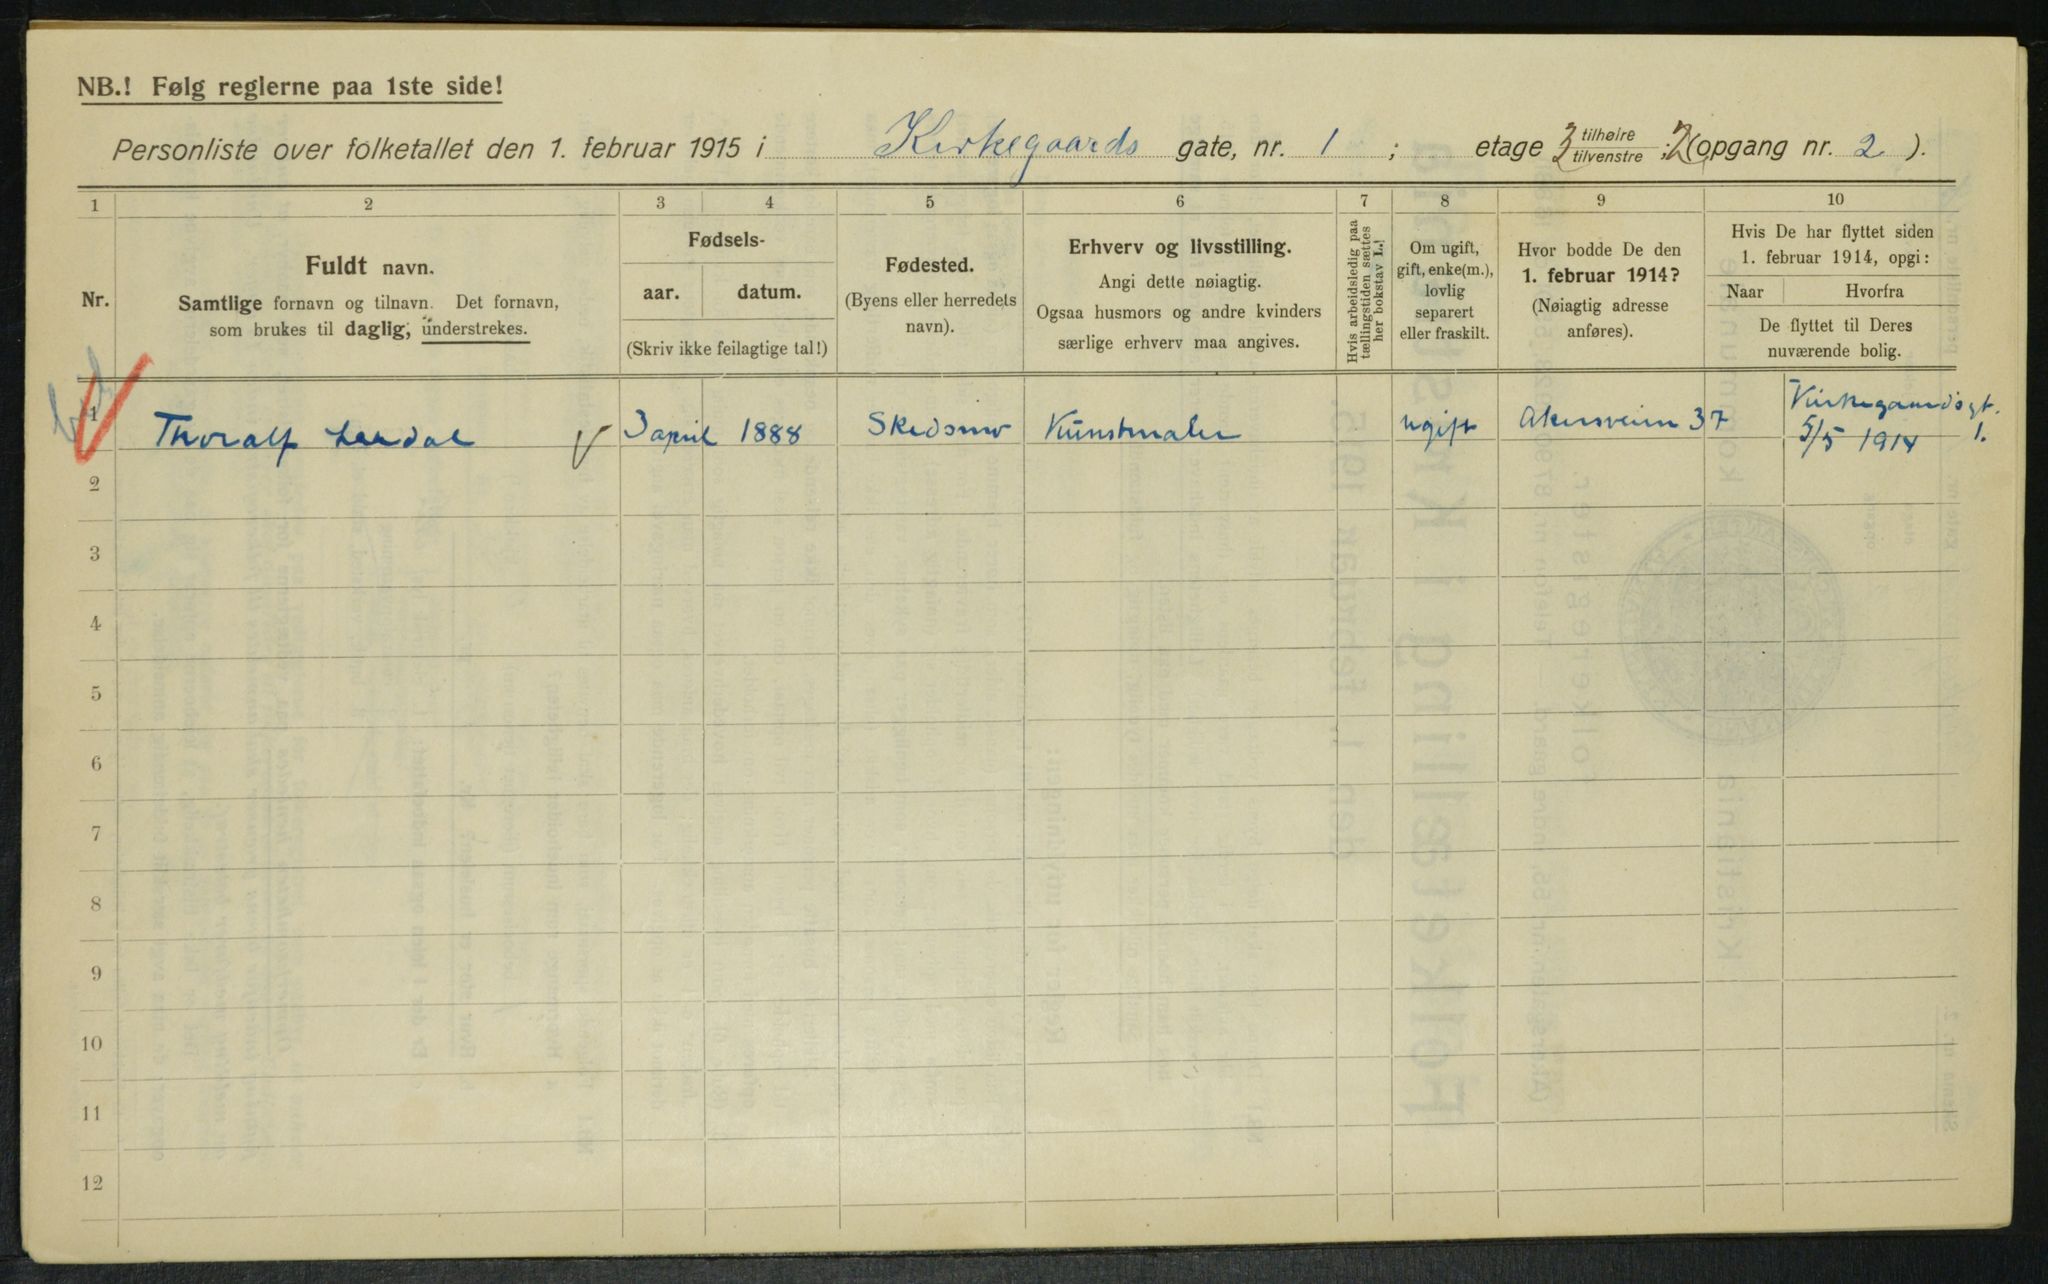 NB.! Følg reglerne paa 1ste side!
Personliste over folketallet den 1. februar 1915 i Kirkegaards gate, nr. 1 ; etage 3 tilhøire tilvenstre ; 2 (opgang nr. 2 ).
1 2 3 4 5 6 7 8 9 10
Nr.
Fuldt navn.
Samtlige fornavn og tilnavn. Det fornavn,
som brukes til daglig, understrekes.
Fødsels-
aar. datum.
(Skriv ikke feilagtige tal!)
Fødested.
(Byens eller herredets
navn).
Erhverv og livsstilling.
Angi dette nøiagtig.
Ogsaa husmors og andre kvinders
særlige erhverv maa angives.
Hvis arbeidsledig paa
tællingstiden sættes
her bokstav L.!
Om ugift,
gift, enke(m.),
lovlig
separert
eller fraskilt.
Hvor bodde De den
1. februar 1914?
(Nøiagtig adresse
anføres).
Hvis De har flyttet siden
1. februar 1914, opgi:
Naar Hvorfra
De flyttet til Deres
nuværende bolig.
1 Thoralf 3 april 1888 Skedsmo Kunstmaler ugift Akersveien 37 Kirkegaardsgt. 1.
5/5 1914
2
3
4
5
6
7
8
9
10
11
12